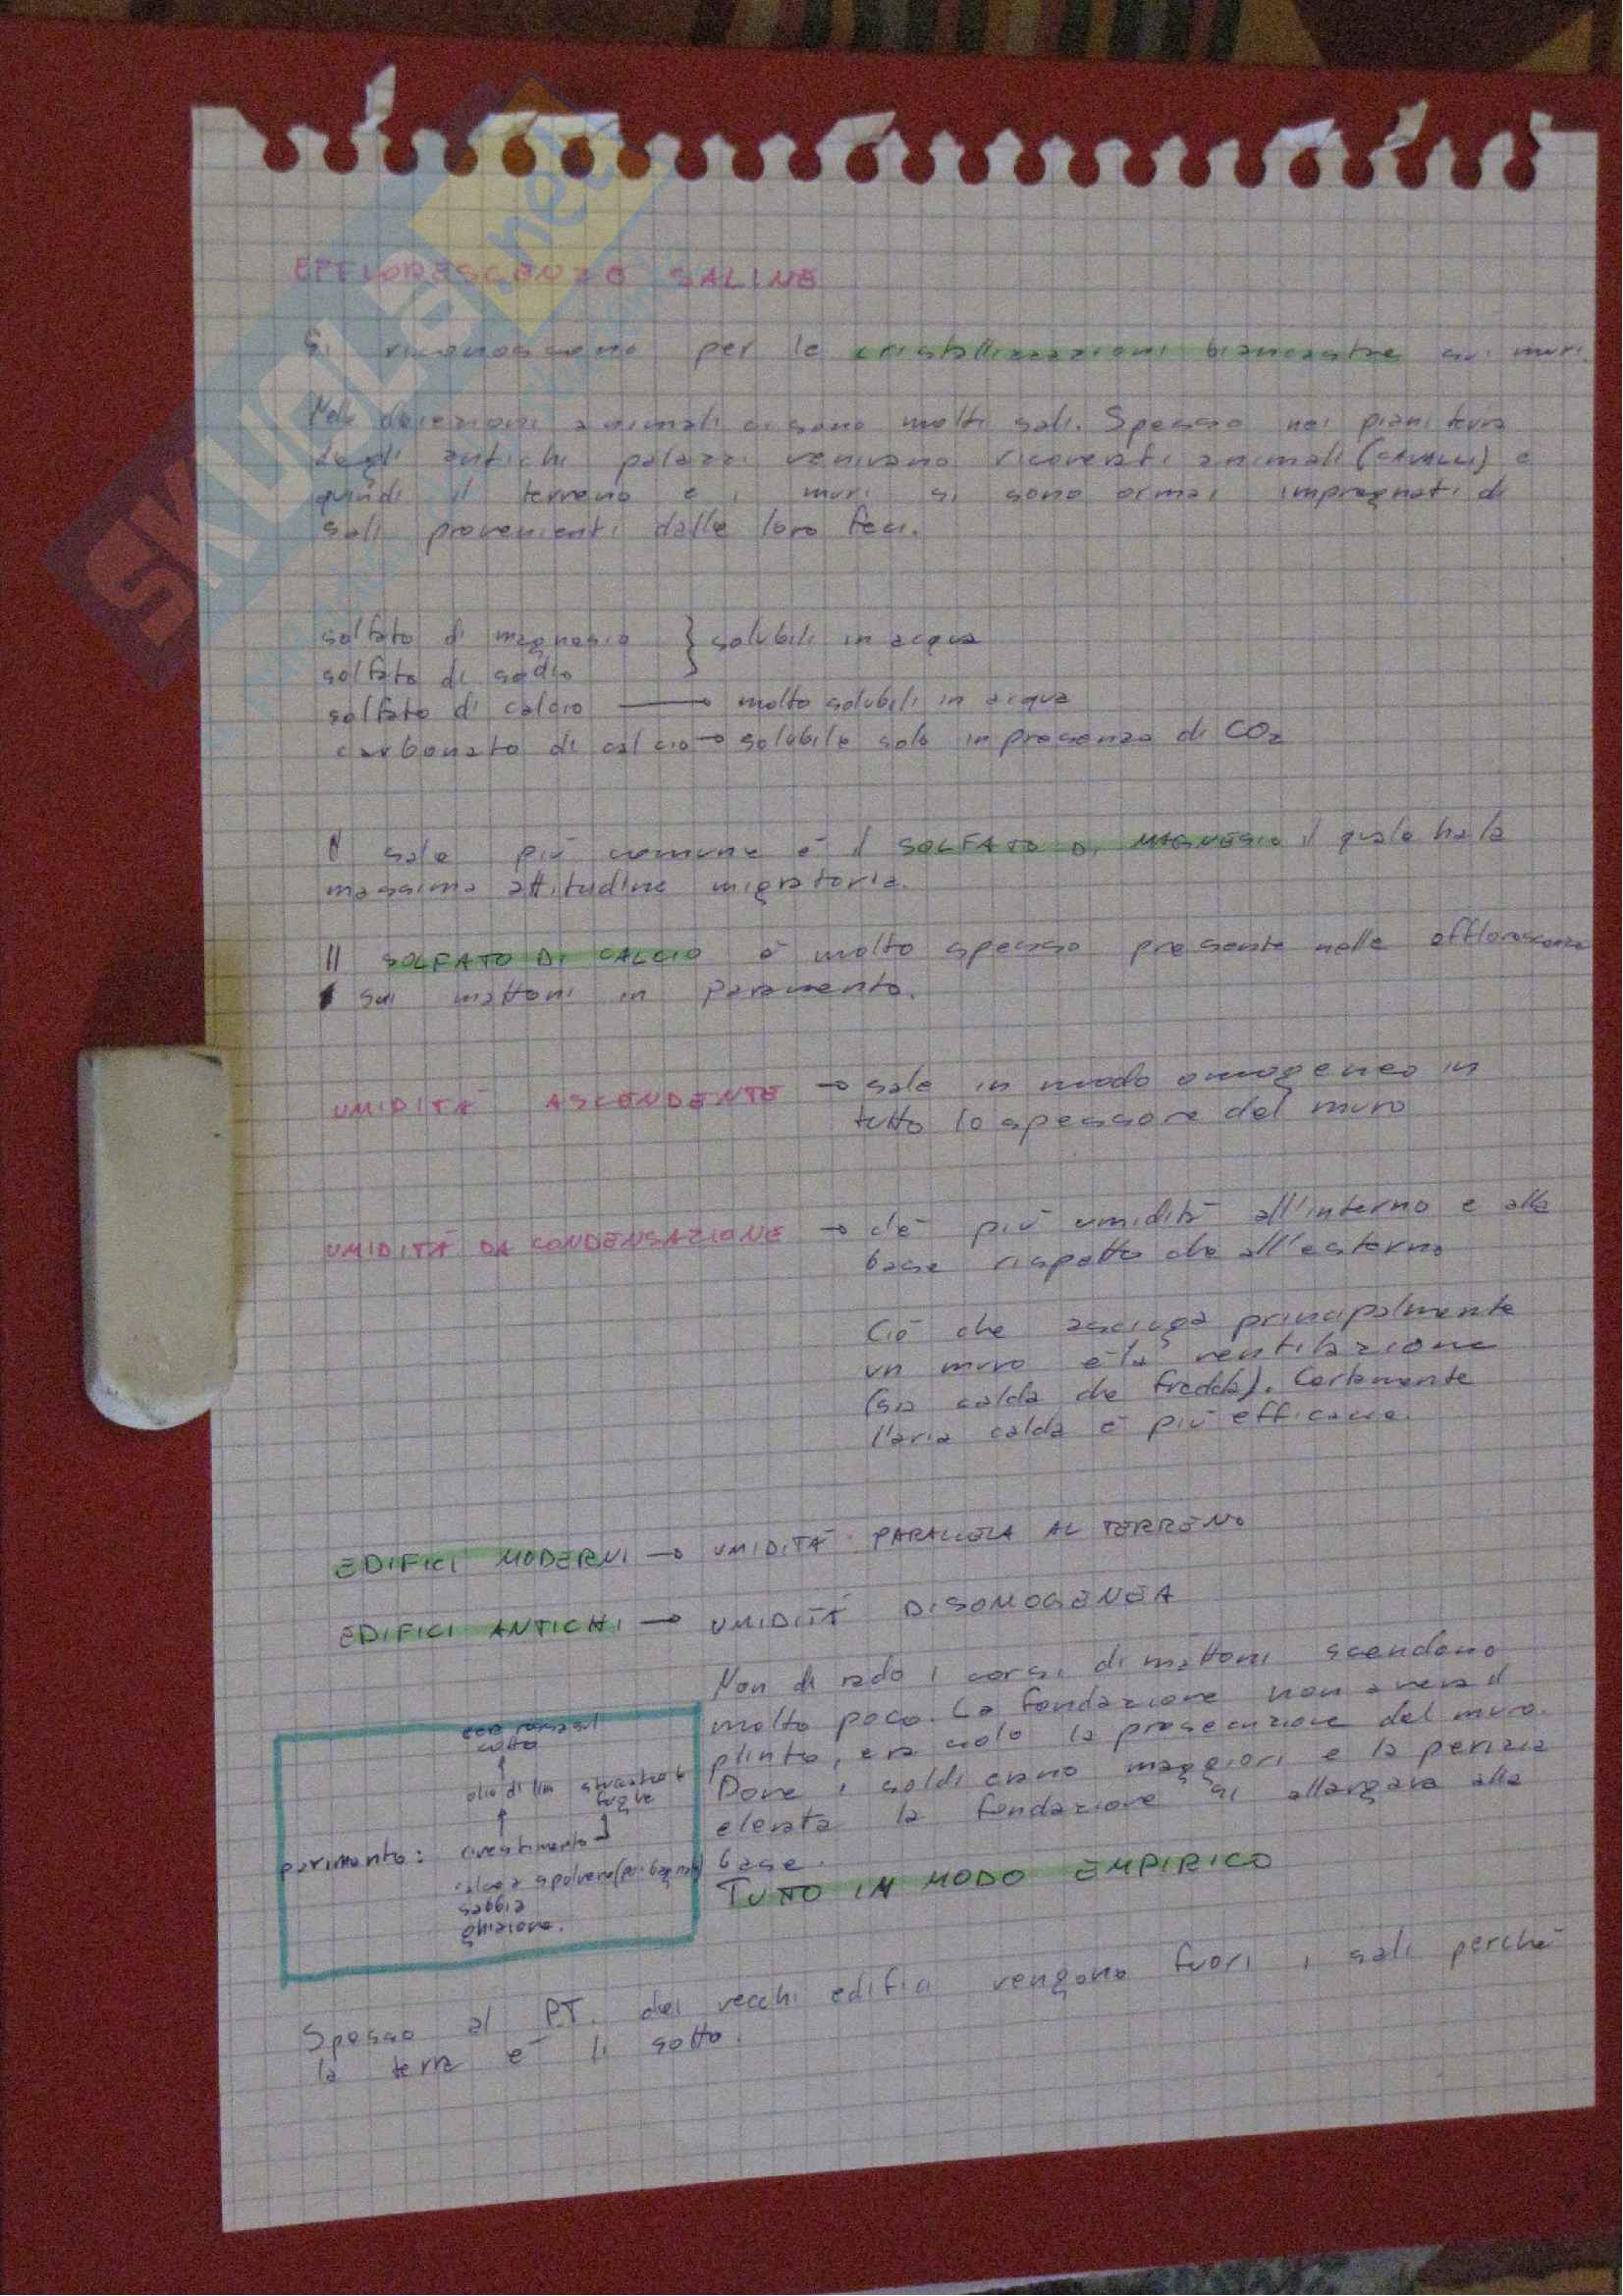 EFFLORESCENZE SALINE
Si riconoscono per le cristallizzazioni biancastre sui muri.
Nelle deiezioni animali ci sono molti sali. Spesso nei piani terra
degli antichi palazzi venivano ricoverati animali (CAVALLI) e
quindi il terreno e i muri si sono ormai impregnati di
sali provenienti dalle loro feci.
solfato di magnesio } solubili in acqua
solfato di sodio
solfato di calcio → molto solubili in acqua
carbonato di calcio → solubile solo in presenza di CO2
Il sale più comune è il SOLFATO DI MAGNESIO il quale ha la
massima attitudine migratoria.
Il SOLFATO DI CALCIO è molto spesso presente nelle efflorescenze
sui mattoni in paramento.
UMIDITÀ ASCENDENTE → sale in modo omogeneo in
tutto lo spessore del muro
UMIDITÀ DA CONDENSAZIONE → c'è più umidità all'interno e alla
base rispetto che all'esterno
Ciò che asciuga principalmente
un muro è la ventilazione
(sia calda che fredda). Certamente
l'aria calda è più efficace.
EDIFICI MODERNI → UMIDITÀ PARALLELA AL TERRENO
EDIFICI ANTICHI → UMIDITÀ DISOMOGENEA
Non di rado i corsi di mattoni scendono
molto poco. La fondazione non aveva il
plinto, era solo la prosecuzione del muro.
Dove i soldi erano maggiori e la perizia
elevata la fondazione si allargava alla
base.
TUTTO IN MODO EMPIRICO
cotto
olio di lin
fughe
pavimento: rivestimento
sabbia
ghiaione.
Spesso al P.T. dei vecchi edifici vengono fuori i sali perché
la terra è lì sotto.
SKUOLA.net